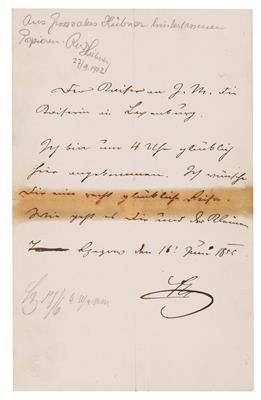 Aus Grosvaters Hübner hinterlassenen
Papieren.
27/9. 1902
Der Kaiser an I. M. die
Kaiserin in Laxenburg.
Ich bin um 4 Uhr glücklich
hier angekommen. Ich wünsche
Dir eine recht glückliche Reise.
Wie geht es Dir und der Kleinen
den 16. Juni 1855